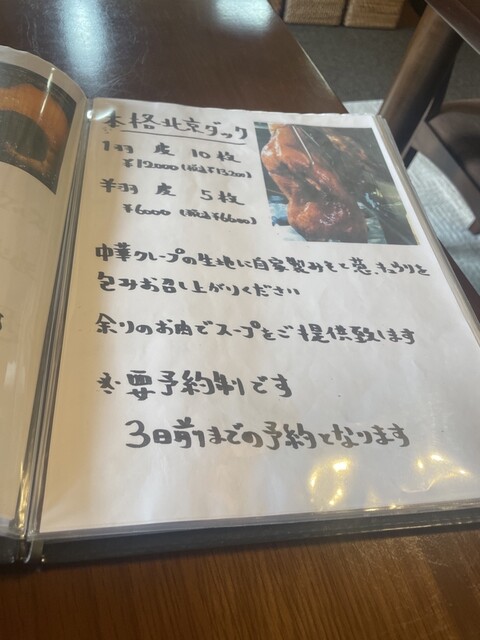 本格北京ダック
1羽 皮 10枚
¥12000(税込¥13200)
半羽 皮 5枚
¥6000(税込¥6600)
中華クレープの生地に自家製みそと葱、キュウリを
包みお召し上がりください
余りのお肉でスープをご提供致します
※要予約制です
3日前までの予約となります